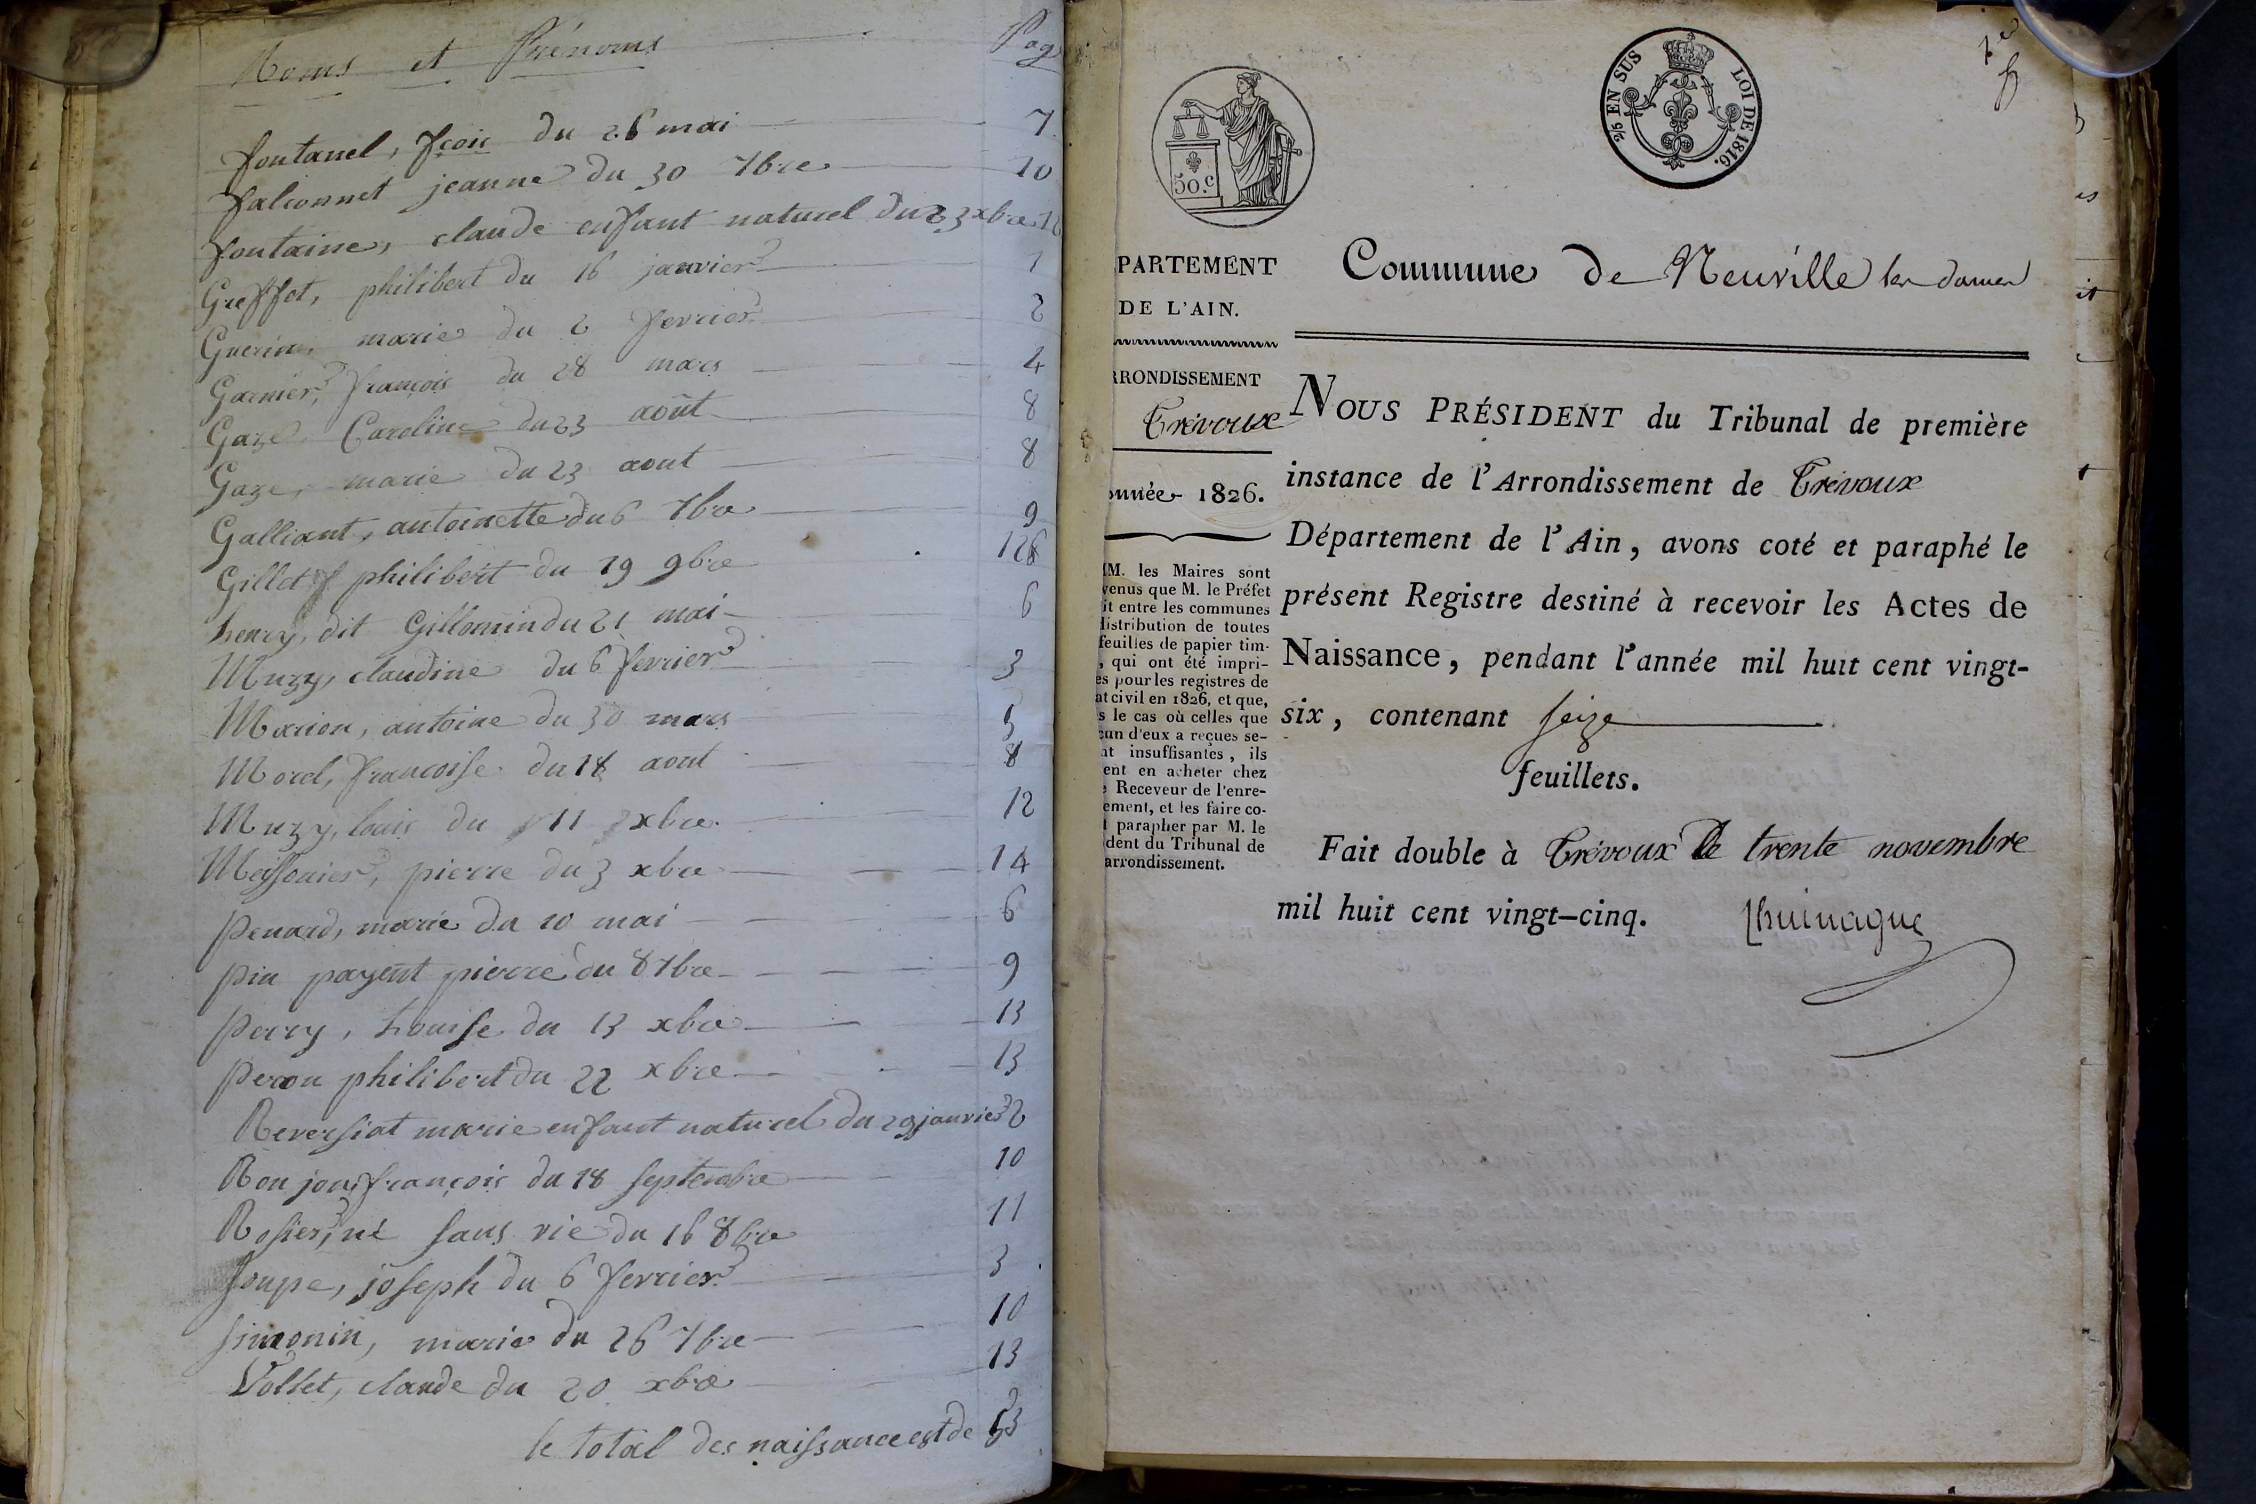 Noms et Prénoms Pag
fontanel, fcois du 26 mai 7
falconnet jeanne du 30 7bre 10
fontaine, claude enfant naturel du 23 xbre
Greffet, philibert du 16 janvier 1
Guerin, marie du 2 fevrier 2
Garnier, françois du 28 mars 4
Gaze, Caroline du 23 août 8
Gaze, marie du 23 aout 8
Galliant, antoinette du 6 7bre 9
Gillet philibert du 19 9bre
henry, dit Gillomin du 21 mai 6
Muzy, claudine du 6 fevrier 3
Marion, antoine du 30 mars 5
Morel, francoise du 18 aout 8
Muzy, louis du 11 xbre 12
Meissonier, pierre du 3 xbre 14
penard, marie du 10 mai 6
pin payent pierre du 8 7bre 9
perry, Louise du 13 xbre 13
peron philibert du 22 xbre 13
Reversiat marie enfant naturel du 29 janvier 2
Bonjour françois du 18 septembre 10
Rosier, né sans vie du 16 8bre 11
Soupe, joseph du 6 fevrier 3
Simonin, marie du 26 7bre 10
Vollet, claude du 20 xbre 13
le total des naissance est de 53
50.c
2/5 EN SUS LOI DE 1816.
PARTEMENT
DE L'AIN.
RRONDISSEMENT
Trévoux
année 1826.
MM. les Maires sont
venus que M. le Préfet
it entre les communes
distribution de toutes
feuilles de papier tim-
, qui ont été impri-
es pour les registres de
at civil en 1826, et que,
s le cas où celles que
cun d'eux a reçues se-
nt insuffisantes, ils
ent en acheter chez
e Receveur de l'enre-
ement, et les faire co-
t parapher par M. le
dent du Tribunal de
arrondissement.
Commune de Neuville les dames
NOUS PRÉSIDENT du Tribunal de première
instance de l'Arrondissement de Trévoux
Département de l'Ain, avons coté et paraphé le
présent Registre destiné à recevoir les Actes de
Naissance, pendant l'année mil huit cent vingt-
six, contenant seize
feuillets.
Fait double à Trévoux le trente novembre
mil huit cent vingt-cinq.